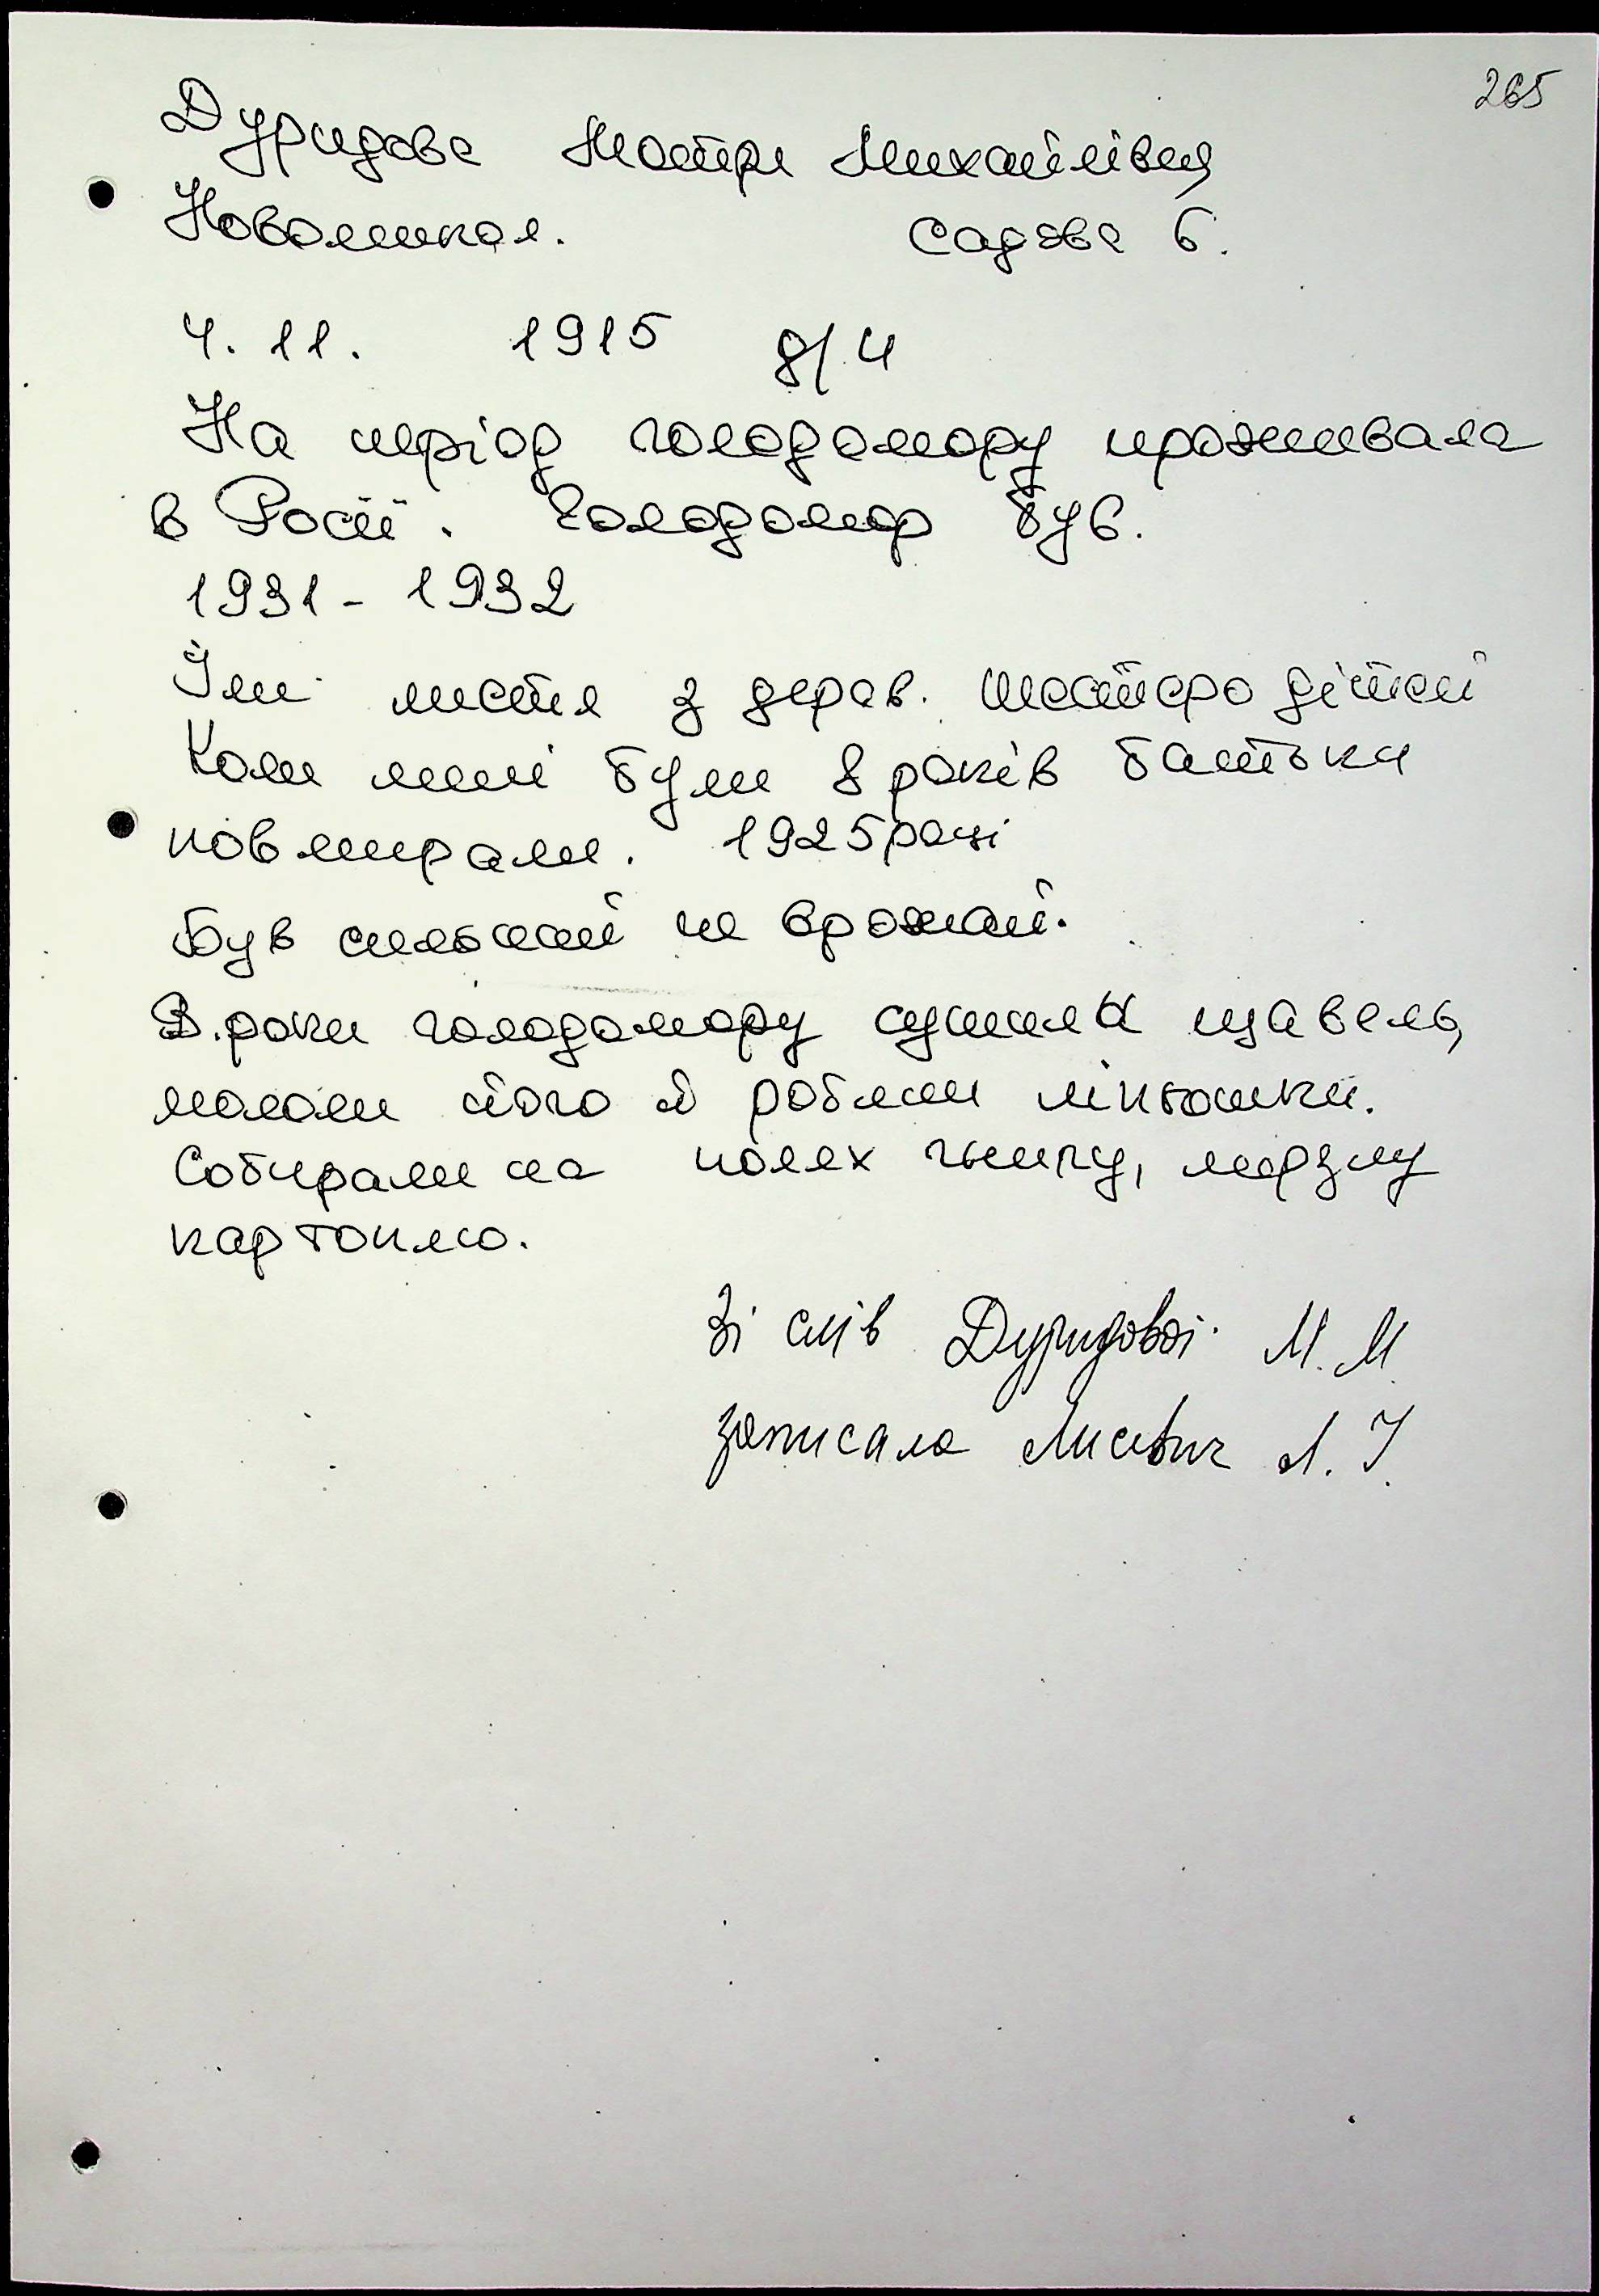 265
Дуридова Мотря Михайлівна
Новомикол. Садова 6.
4. 11. 1915 8/4
На період голодомору проживала
в Росії. Голодомор був.
1931 - 1932
Їли листя з дерев. Шестеро дітей
Коли мені були 8 років батьки
повмирали. 1925 році
Був сильний не врожай.
В роки голодомору сушила щавель,
мололи його й робили ліпьошки.
Собирали на полях гнилу, мерзлу
картоплю.
Зі слів Дуридової М. М.
записала Лисевич Л. І.